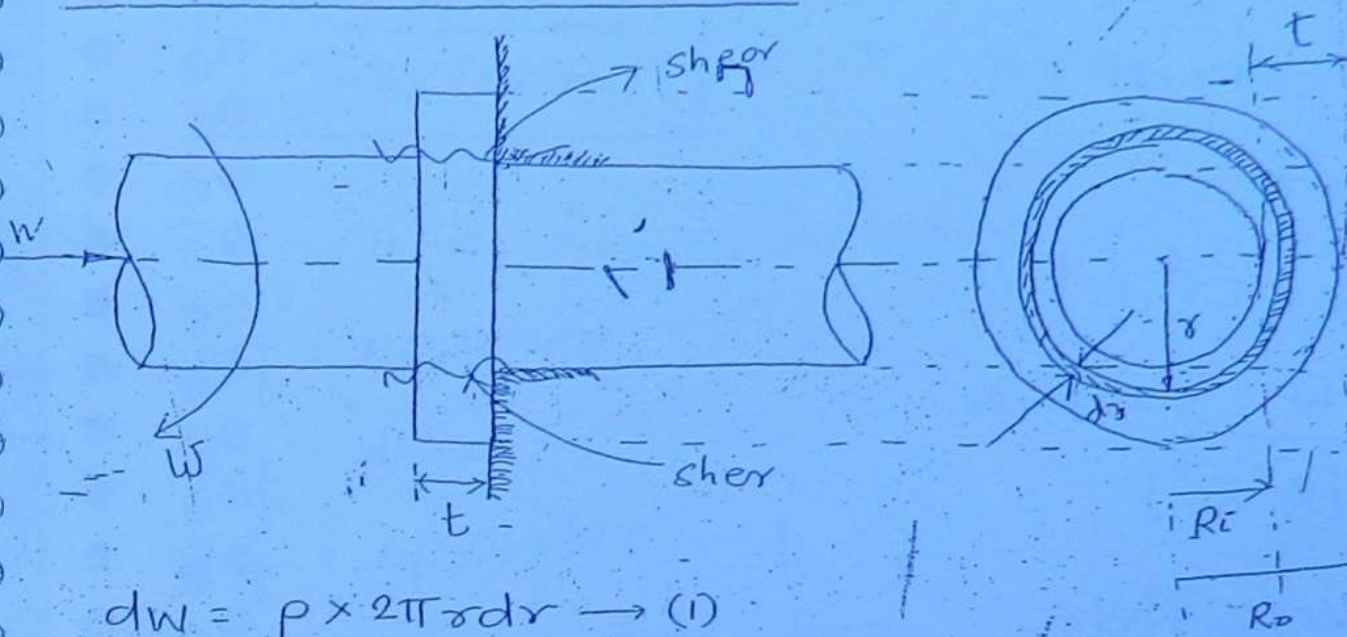 shear
t
W
r
dr
W
sher
t
Ri
Ro
dW = P × 2πrdr → (1)